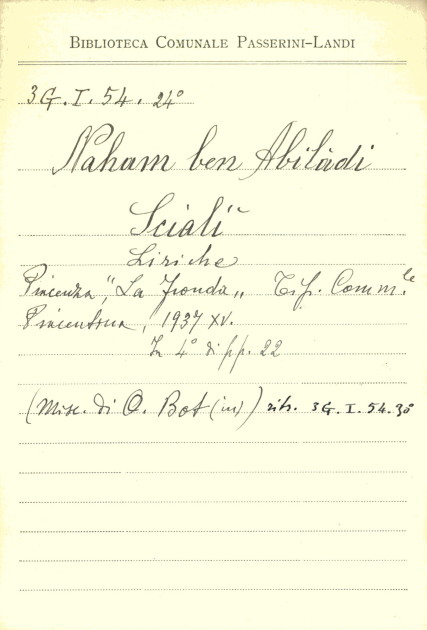 BIBLIOTECA COMUNALE PASSERINI-LANDI
3G. I. 54. 24°
Naham ben Abilàdi
Scialì
Liriche
Piacenza, "La Fronda" Tip. Comm.le
Piacentina, 1937 XV.
In 4° di pp. 22
(Misc. di O. Bot (in)) 3G. I. 54. 30